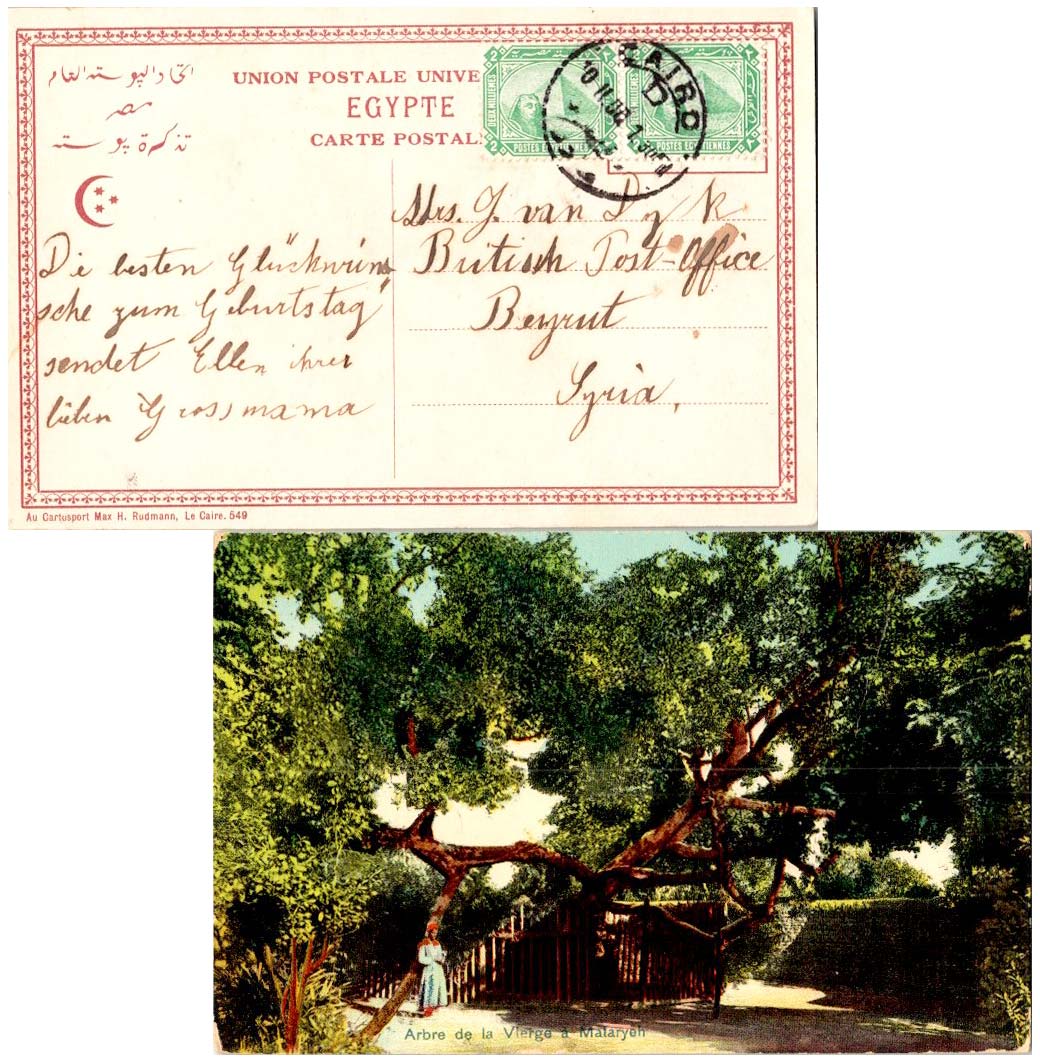 اتحاد البوسته العام
مصر
تذكرة بوسته
UNION POSTALE UNIVE
EGYPTE
CARTE POSTAL
2
DEUX MILLIEMES
POSTES EGYPTIENNES
POSTES EGYPTIENNES
CAIRO
D
Mrs. J. van Dyk
British Post-Office
Beyrut
Syria,
Die besten Glückwün-
sche zum Geburtstag
sendet Ellen ihrer
lieben Grossmama
Au Cartosport Max H. Rudmann, Le Caire. 549
Arbre de la Vierge à Mataryeh